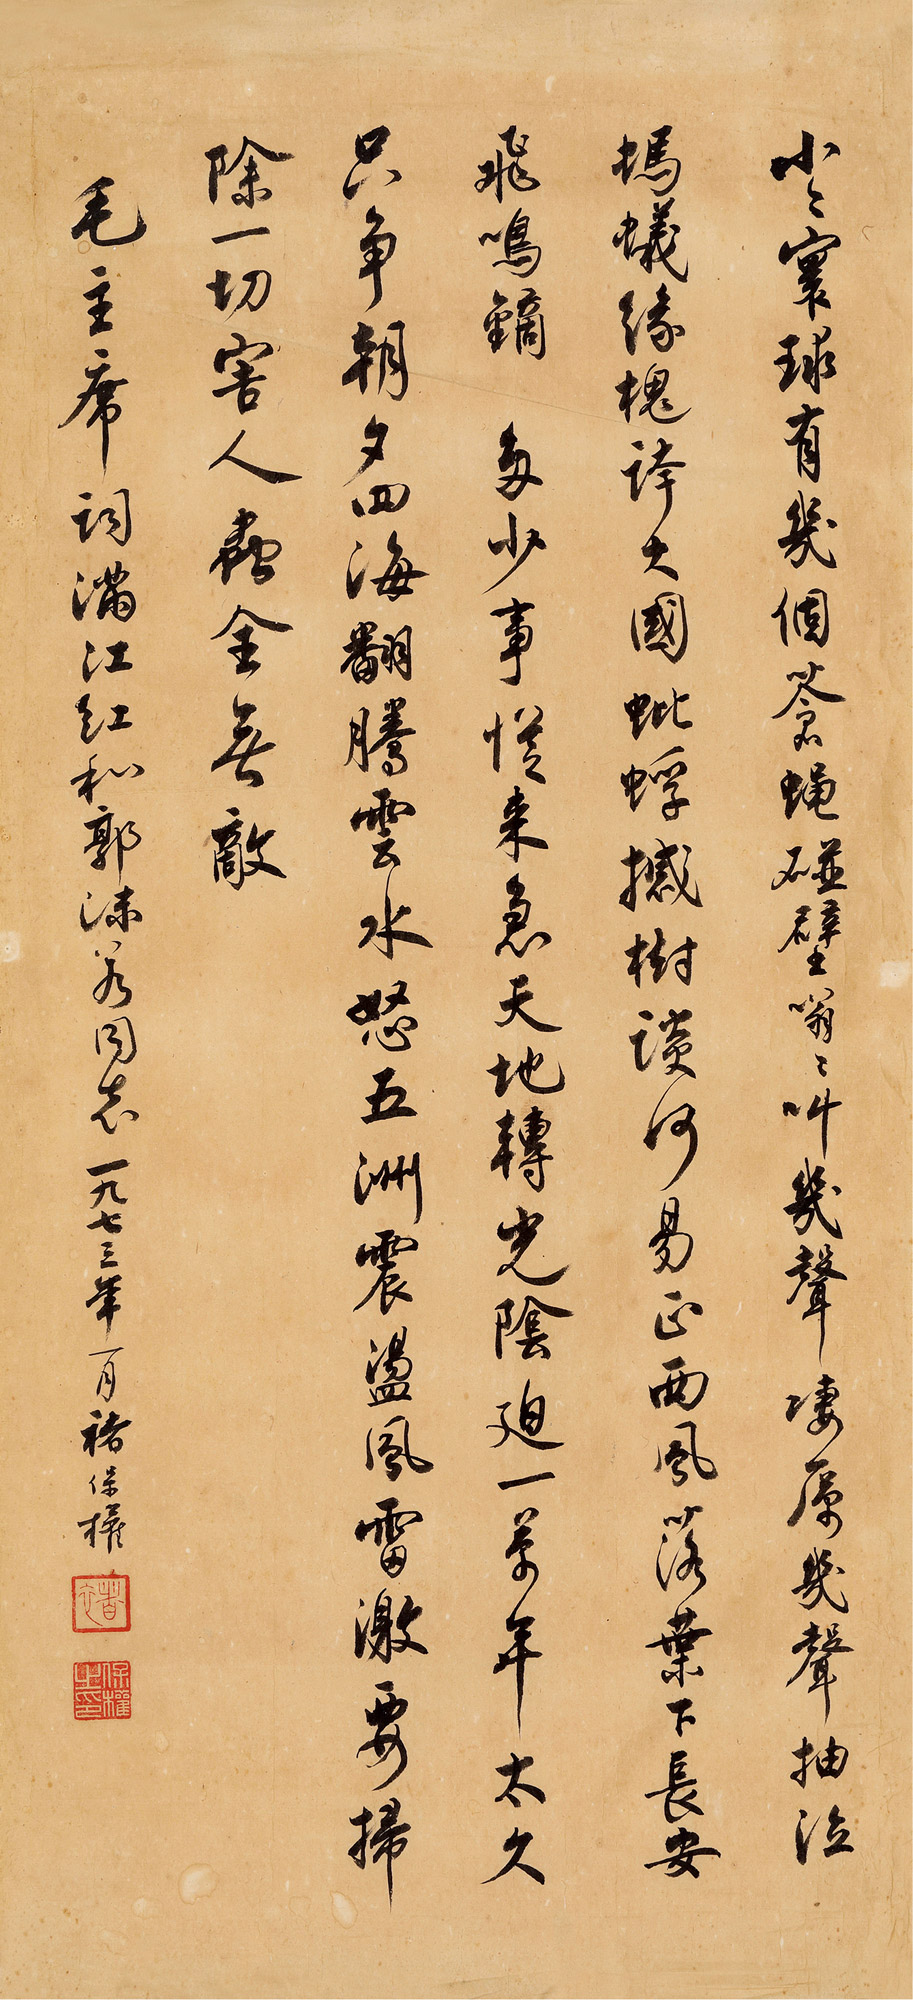 小々寰球有幾個蒼蝇碰壁嗡々叫幾聲凄厲幾聲抽泣
螞蟻緣槐誇大國蚍蜉撼樹談何易正西風落葉下長安
飛鳴鏑 多少事從来急天地轉光陰迫一萬年太久
只争朝夕四海翻騰雲水怒五洲震盪風雷激要掃
除一切害人蟲全無敵
毛主席詞满江红和郭沫若同志一九七三年一月褚保權
褚
保權之印